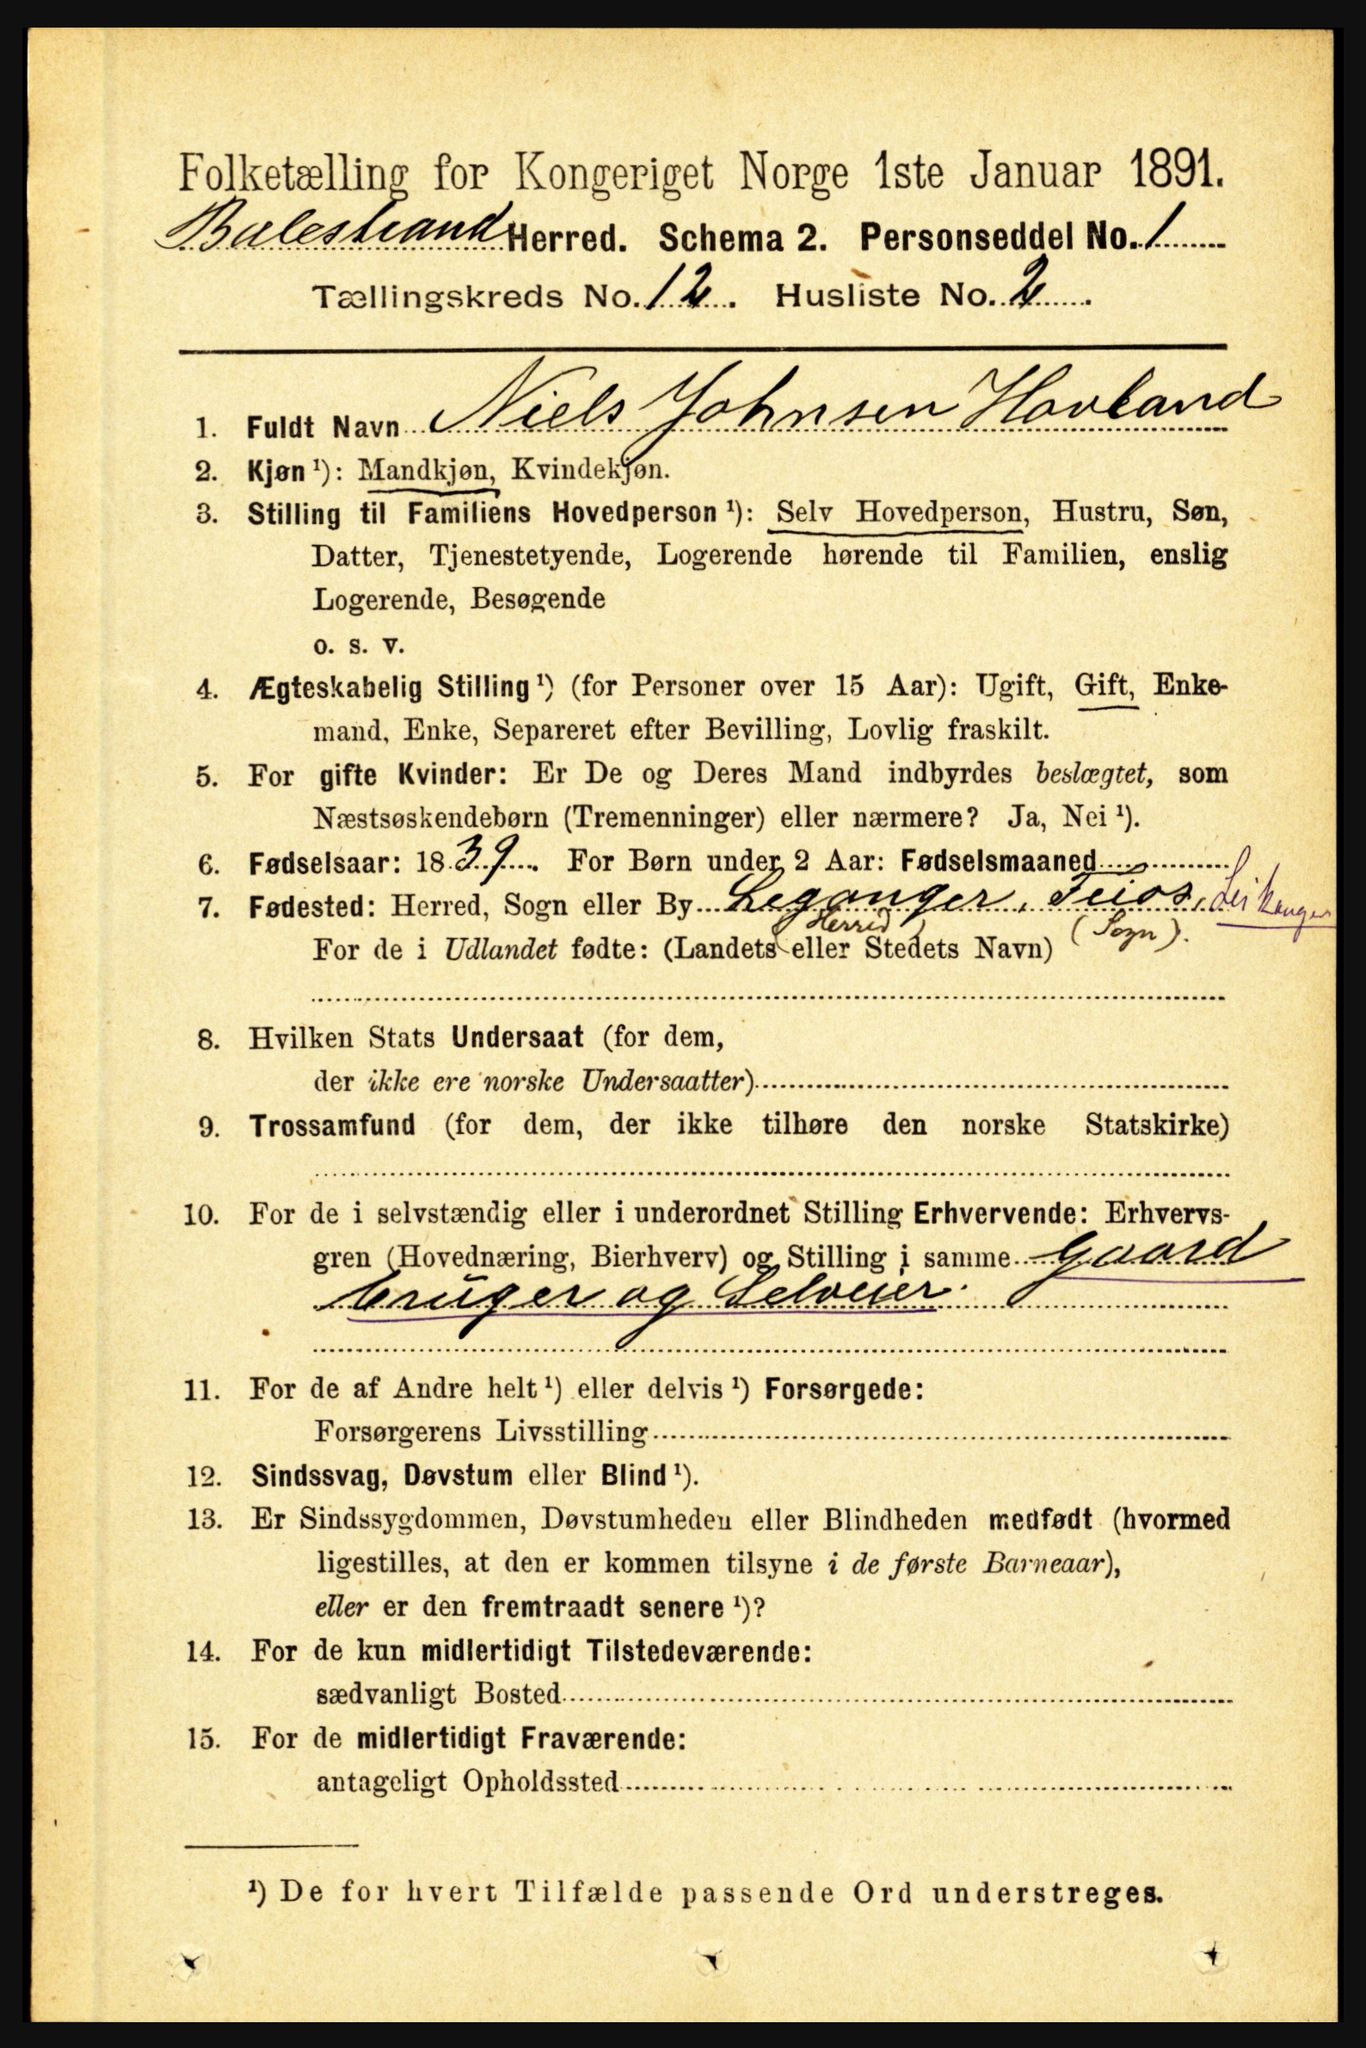 Folketælling for Kongeriget Norge 1ste Januar 1891.
Balestrand Herred. Schema 2. Personseddel No. 1
Tællingskreds No. 12. Husliste No. 2.
1. Fuldt Navn Niels Johnsen Hovland
2. Kjøn ¹): Mandkjøn, Kvindekjøn.
3. Stilling til Familiens Hovedperson ¹): Selv Hovedperson, Hustru, Søn,
Datter, Tjenestetyende, Logerende hørende til Familien, enslig
Logerende, Besøgende
o. s. v.
4. Ægteskabelig Stilling ¹) (for Personer over 15 Aar): Ugift, Gift, Enke-
mand, Enke, Separeret efter Bevilling, Lovlig fraskilt.
5. For gifte Kvinder: Er De og Deres Mand indbyrdes beslægtet, som
Næstsøskendebørn (Tremenninger) eller nærmere? Ja, Nei ¹).
6. Fødselsaar: 1839. For Børn under 2 Aar: Fødselsmaaned
7. Fødested: Herred, Sogn eller By Leganger, Feios, Leikanger
(Herred) (Sogn).
For de i Udlandet fødte: (Landets eller Stedets Navn)
8. Hvilken Stats Undersaat (for dem,
der ikke ere norske Undersaatter)
9. Trossamfund (for dem, der ikke tilhøre den norske Statskirke)
10. For de i selvstændig eller i underordnet Stilling Erhvervende: Erhvervs-
gren (Hovednæring, Bierhverv) og Stilling i samme Gaard
bruger og Selveier.
11. For de af Andre helt ¹) eller delvis ¹) Forsørgede:
Forsørgerens Livsstilling
12. Sindssvag, Døvstum eller Blind ¹).
13. Er Sindssygdommen, Døvstumheden eller Blindheden medfødt (hvormed
ligestilles, at den er kommen tilsyne i de første Barneaar),
eller er den fremtraadt senere ¹)?
14. For de kun midlertidigt Tilstedeværende:
sædvanligt Bosted
15. For de midlertidigt Fraværende:
antageligt Opholdssted
¹) De for hvert Tilfælde passende Ord understreges.